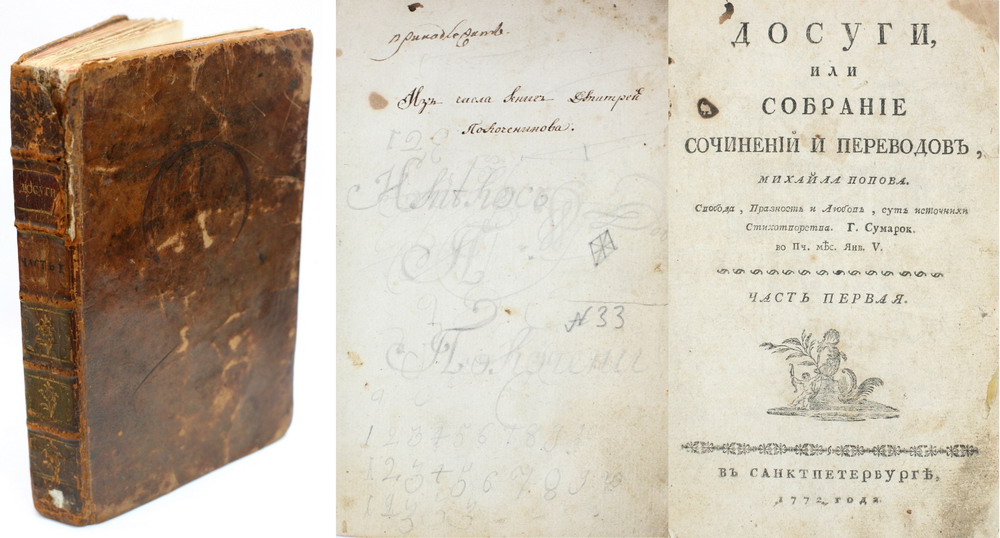 ДОСУГИ
ЧАСТЬ I
принадлежитъ.
Изъ числа книгъ Дмитрей
Похоченинова.
123
№33
Похочени
1 2 3 4 5 6 7 8 9
1 2 3 4 5 6 7 8 9 10
1 2 3
ДОСУГИ,
ИЛИ
СОБРАНІЕ
СОЧИНЕНІЙ И ПЕРЕВОДОВЪ,
МИХАЙЛА ПОПОВА.
Свобода, Празность и Любовь, суть источники
Стихотворства. Г. Сумарок.
во Пч. мѣс. Янв. V.
ЧАСТЬ ПЕРВАЯ.
ВЪ САНКТПЕТЕРБУРГѢ,
1772 года